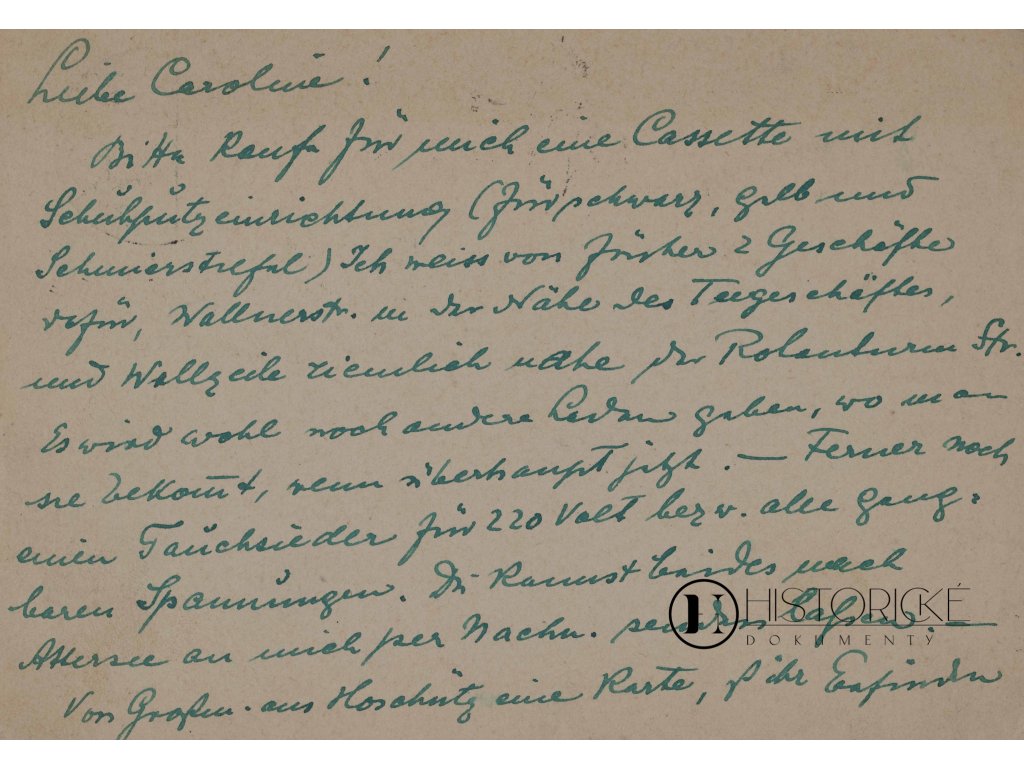 Liebe Caroline!
Bitte Kaufe für mich eine Cassette mit
Schuhputzeinrichtung (für schwarz, gelb und
Schmierstiefel) Ich weiss von früher 2 Geschäfte
dafür, Wallnerstr. in der Nähe des Teegeschäftes,
und Wollzeile ziemlich nahe der Rotenturm Str.
Es wird wohl noch andere Laden geben, wo man
sie bekom̅t, wenn überhaupt jetzt. — Ferner noch
einen Tauchsieder für 220 Volt bezw. alle gang-
baren Spannungen. Du kannst beides nach
Attersee an mich per Nachn. senden lassen. —
Von Großm. aus Hoschütz eine Karte, ihr Befinden
HISTORICKÉ
DOKUMENTY